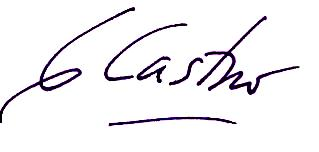 G Castro